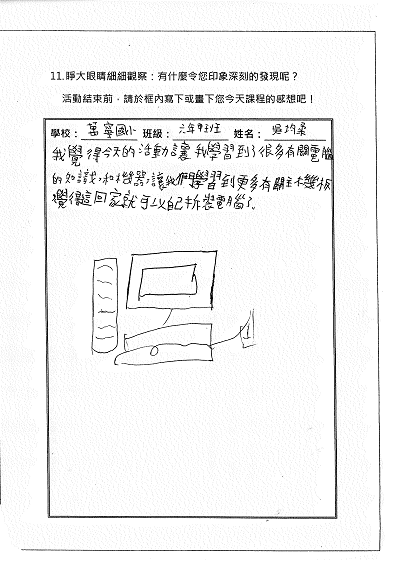 11.睜大眼睛細細觀察：有什麼令您印象深刻的發現呢？
活動結束前，請於框內寫下或畫下您今天課程的感想吧！
學校：萬寧國小 班級：六年 班 姓名：吳均柔
我覺得今天的活動讓我學習到了很多有關電腦
的知識，和機器，讓我們學習到更多有關主機板
覺得這回家就可以自己拆裝電腦了。